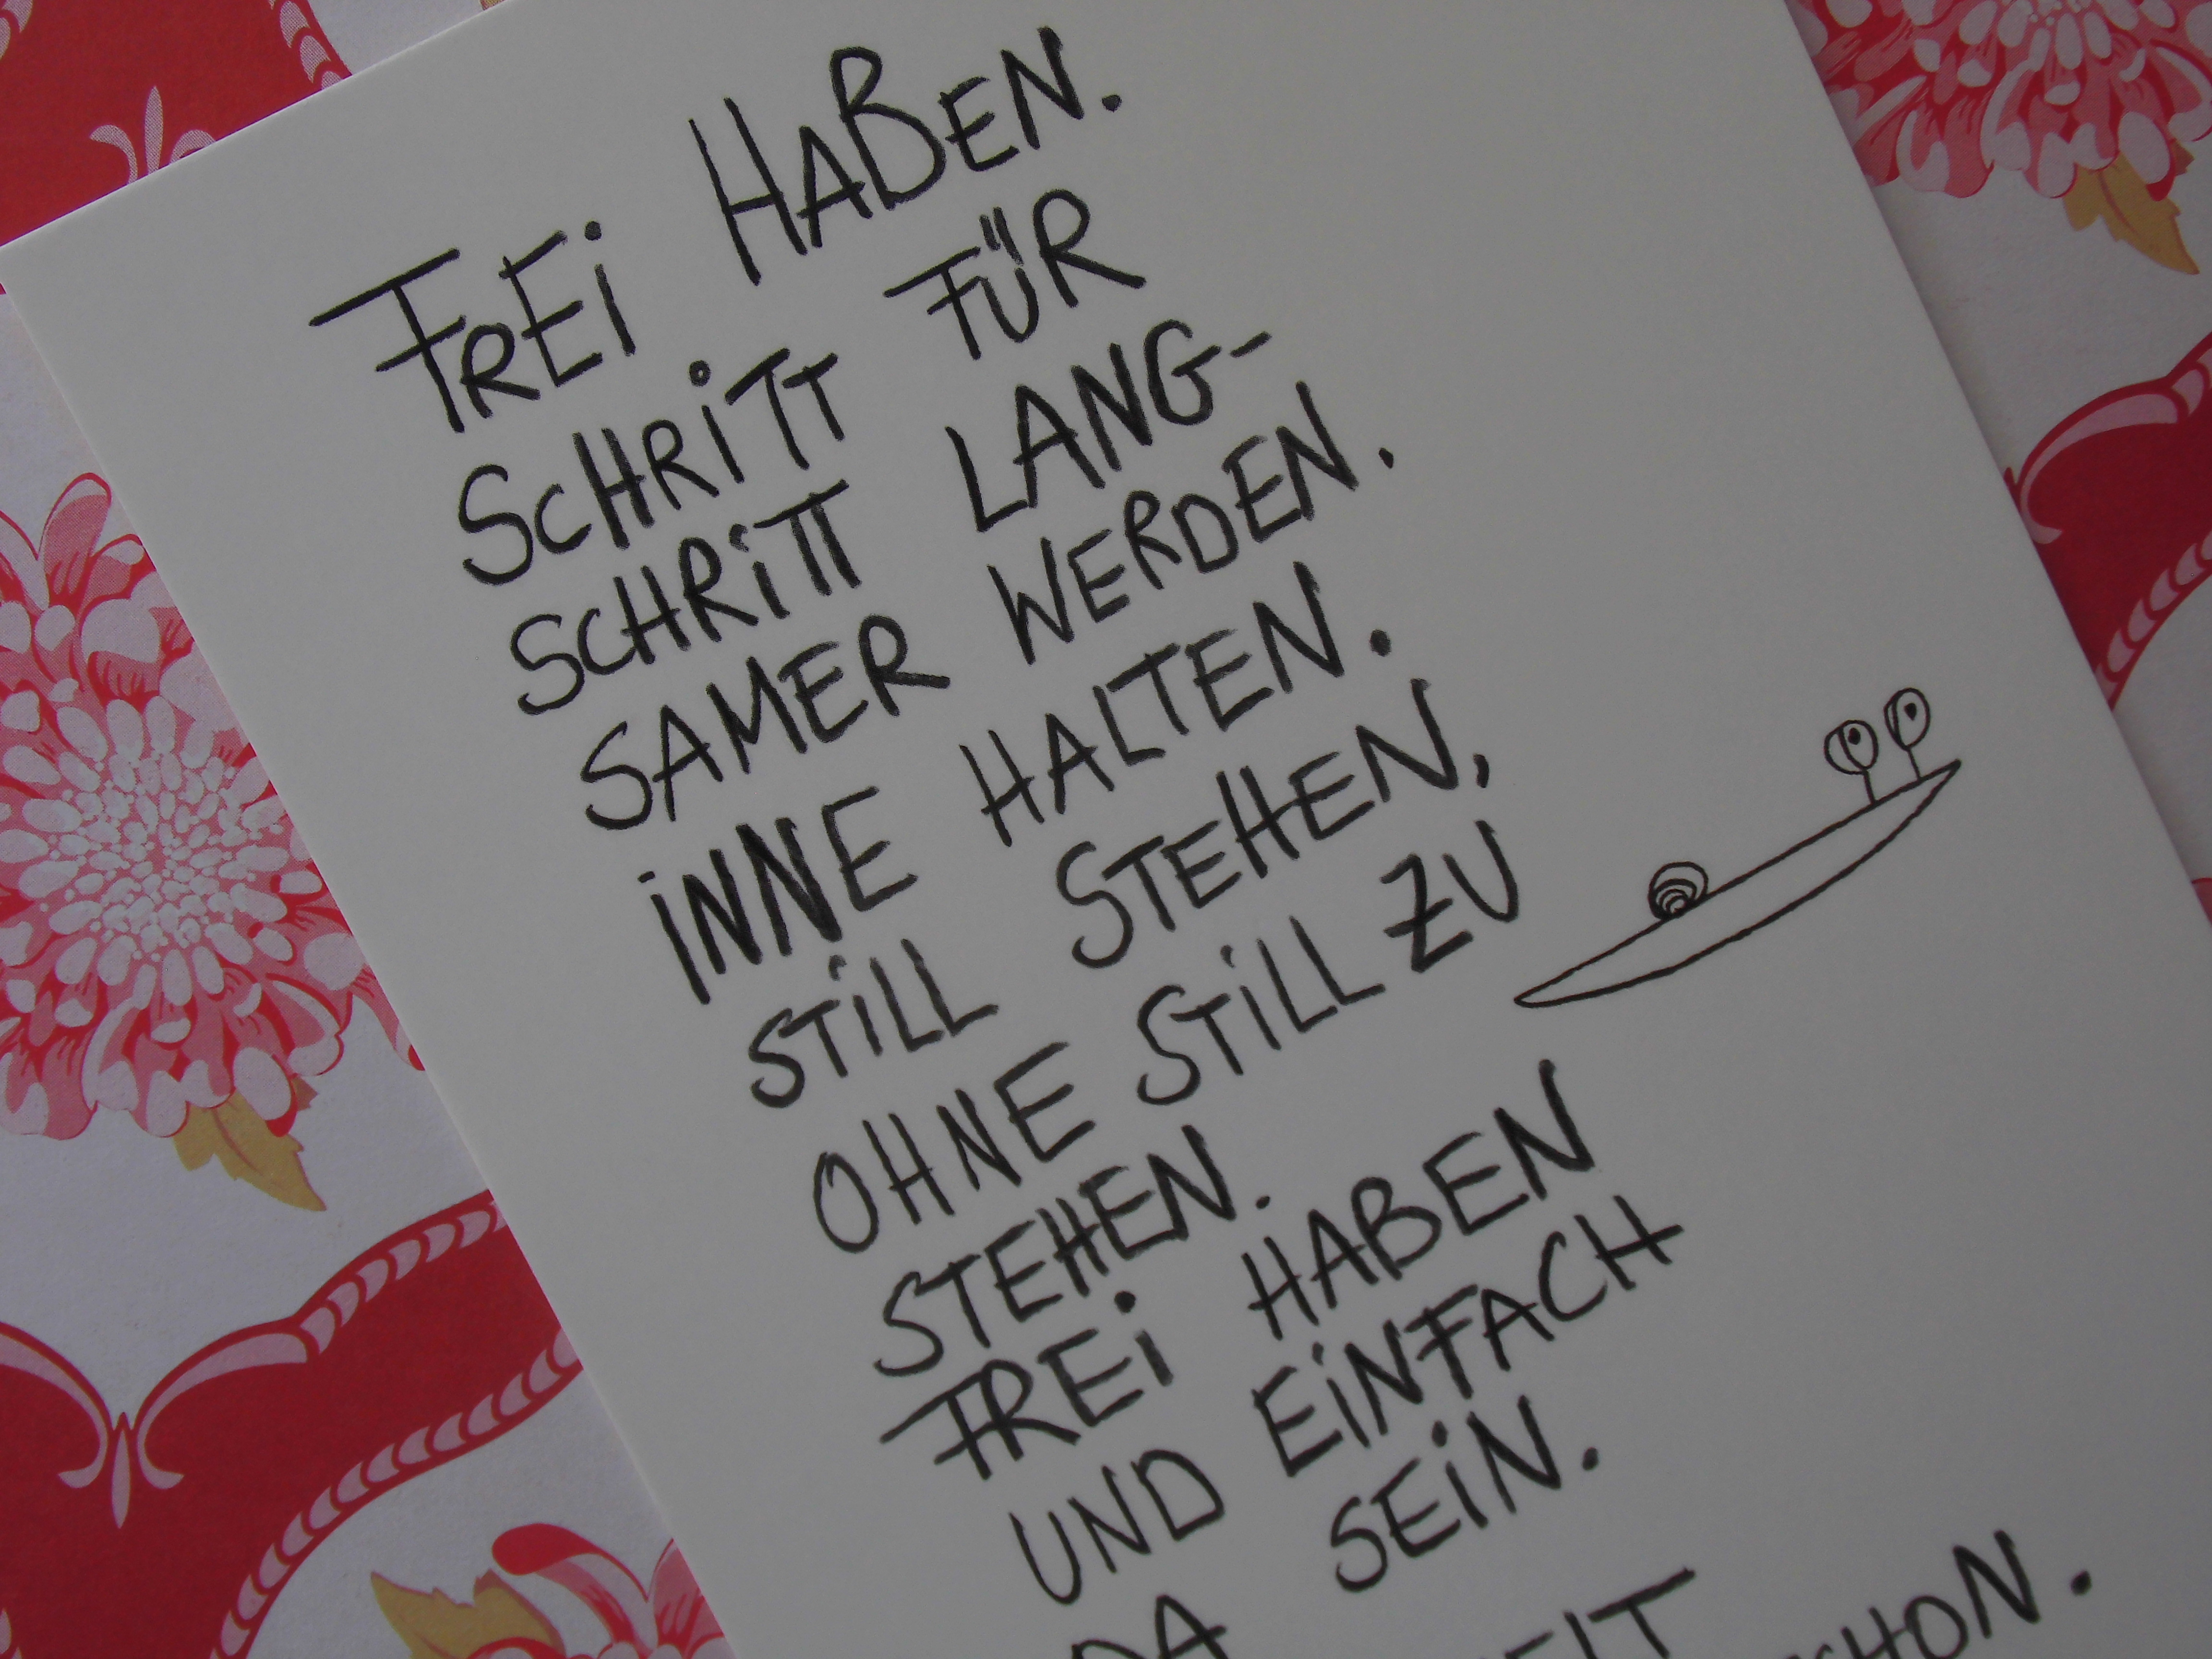 FREi HABEN.
SCHRiTT FÜR
SCHRiTT LANG-
SAMER WERDEN.
iNNE HALTEN.
STiLL STEHEN,
OHNE STiLL ZU
STEHEN.
FREi HABEN
UND EiNFACH
DA SEiN.